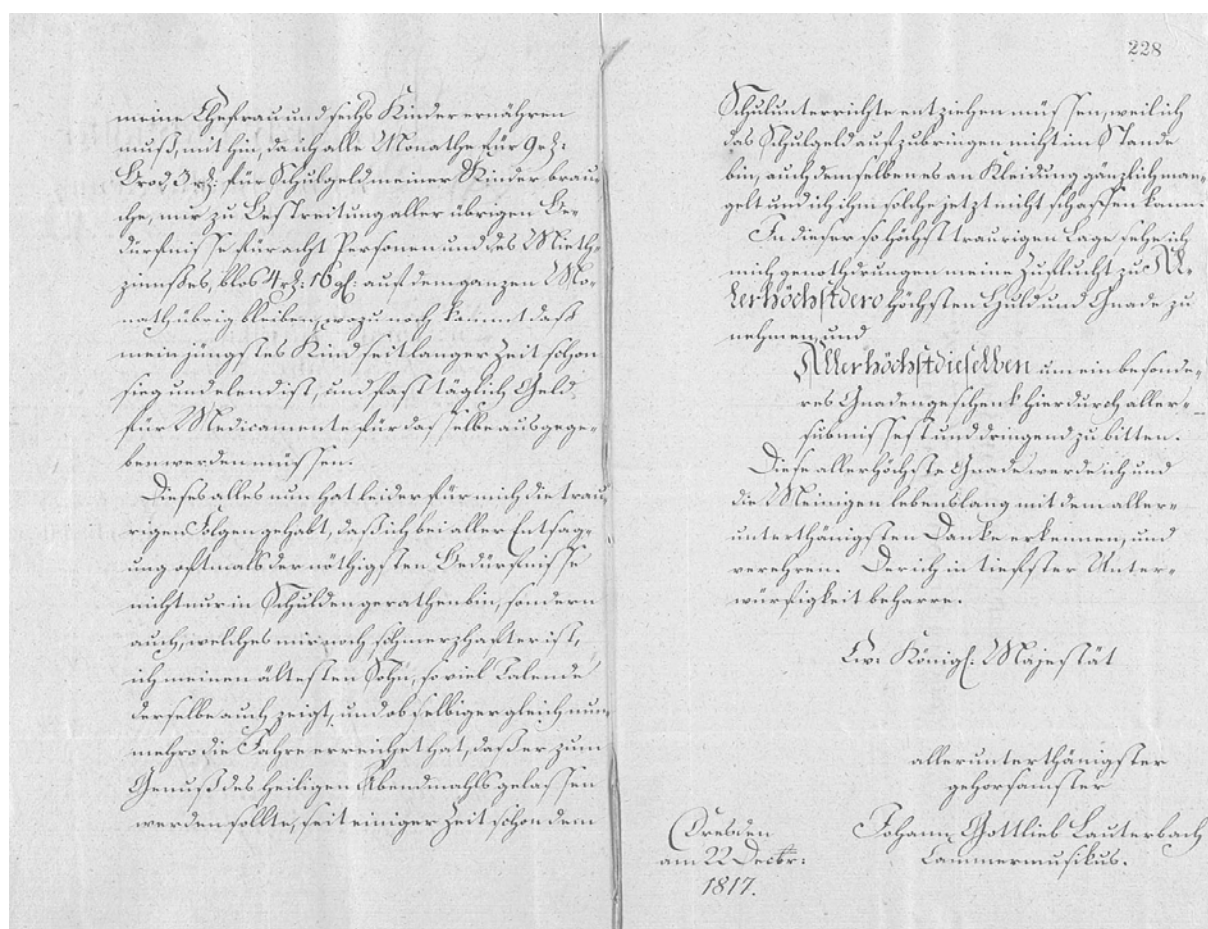 meine Ehefrau und sechs Kinder ernähren
muß, mithin, da ich alle Monathe für 9 rh:
Brod, 3 rh: für Schulgeld meiner Kinder brau-
che, mir zu Bestreitung aller übrigen Be-
dürfnisse für acht Personen und des Mieth-
zinnßes, blos 4 rh: 16 gl: auf dem ganzen Mo-
nath übrig bleiben, wozu noch kommt daß
mein jüngstes Kind seit langer Zeit schon
sieg und elend ist, und fast täglich Geld
für Medicamente für das selbe ausgege-
ben werden müssen.
Dieses alles nun hat leider für mich die trau-
rigen Folgen gehabt, daß ich bei aller Entsag-
ung oftmals der nöthigsten Bedürfnisse
nicht nur in Schulden gerathen bin, sondern
auch, welches mir noch schmerzhafter ist,
ich meinen ältesten Sohn, so viel Talende
derselbe auch zeigt, und ob selbiger gleich nun-
mehro die Jahre erreichet hat, daß er zum
Genuß des heiligen Abendmahls gelassen
werden sollte, seit einiger Zeit schon dem
228
Schulunterrichte entziehen müssen, weil ich
das Schulgeld aufzubringen nicht im Stande
bin, auch demselben es an Kleidung gänzlich man-
gelt und ich ihm solche jetzt nicht schaffen kann.
In dieser so höchst traurigen Lage sehe ich
mich genothdrungen meine Zuflucht zu Al-
lerhöchstdero höchsten Huld und Gnade zu
nehmen, und
Allerhöchstdieselben um ein besonde-
res Gnadengeschenk hierdurch aller-
submissest und dringend zu bitten.
Diese allerhöchste Gnade werde ich und
die Meinigen lebenslang mit dem aller-
unterthänigsten Danke erkennen, und
verehren. Der ich in tiefster Unter-
würfigkeit beharre.
Ew: Königl: Majestät
allerunterthänigster
gehorsamster
Johann Gottlieb Lauterbach
Cammermusikus.
Dresden
am 22 Decbr:
1817.